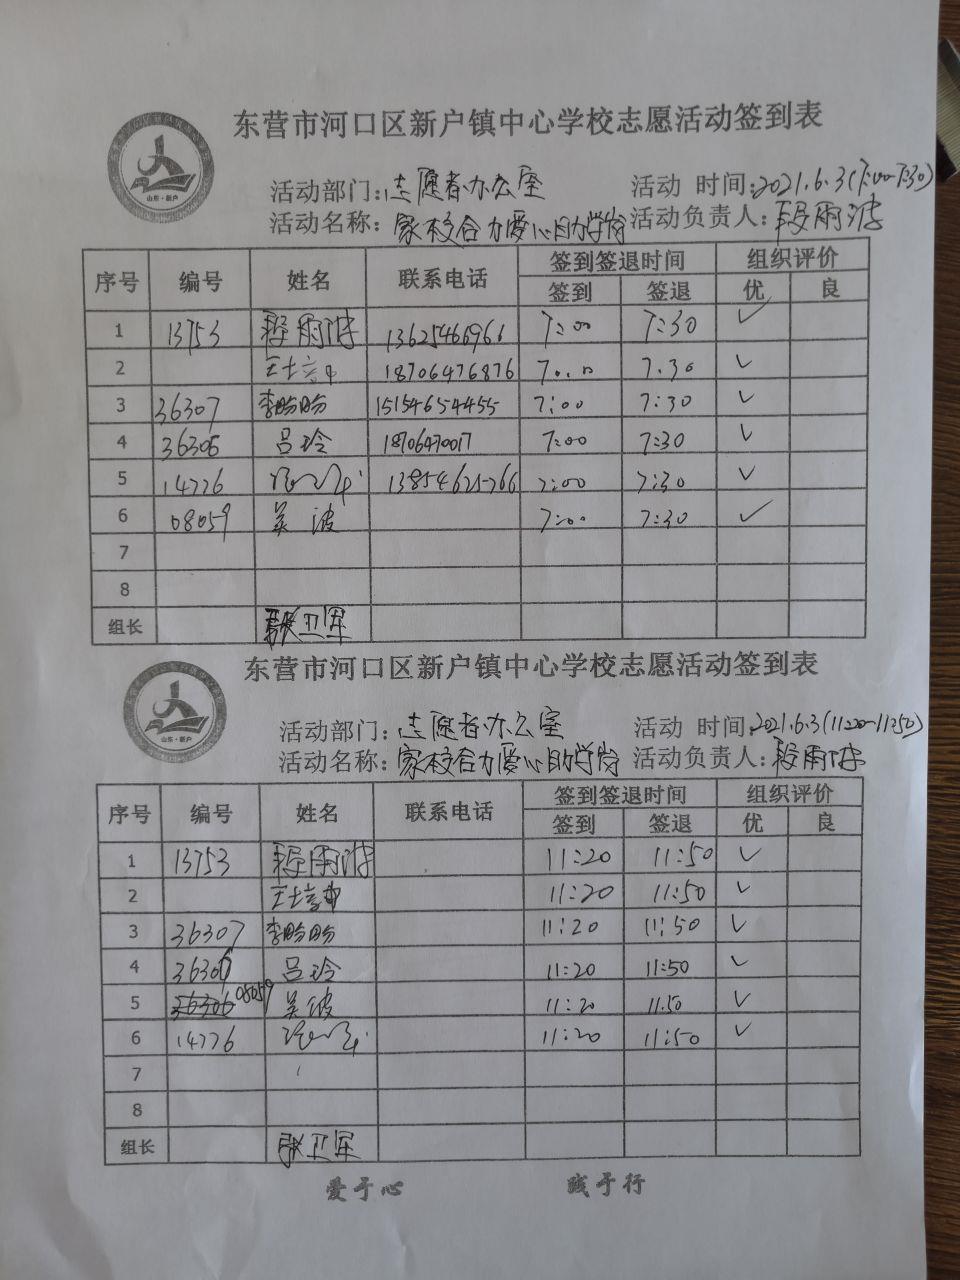 东营市河口区新户镇中心学校志愿活动签到表
活动部门:志愿者办公室 活动 时间:2021.6.3(7:00-7:30)
活动名称:家校合力爱心助学岗 活动负责人:段雨
序号 编号 姓名 联系电话 签到签退时间 组织评价
签到 签退 优 良
1 13753 段雨 13625466966 7:00 7:30 ✓
2 王士 18706476876 7:00 7.30 ✓
3 36307 李盼盼 15154654455 7:00 7:30 ✓
4 36306 吕玲 18706470017 7:00 7:30 ✓
5 14776 13854625766 7:00 7:30 ✓
6 08059 吴波 7:00 7:30 ✓
7
8
组长 张卫军
山东·新户
东营市河口区新户镇中心学校志愿活动签到表
活动部门:志愿者办公室 活动 时间:2021.6.3(11:20-11:50)
活动名称:家校合力爱心助学岗 活动负责人:段雨
序号 编号 姓名 联系电话 签到签退时间 组织评价
签到 签退 优 良
1 13753 段雨 11:20 11:50 ✓
2 王士 11:20 11:50 ✓
3 36307 李盼盼 11:20 11:50 ✓
4 吕玲 11:20 11:50 ✓
5 08059 吴波 11:20 11.50 ✓
6 14776 11:20 11:50 ✓
7
8
组长 张卫军
山东·新户
爱于心 践于行